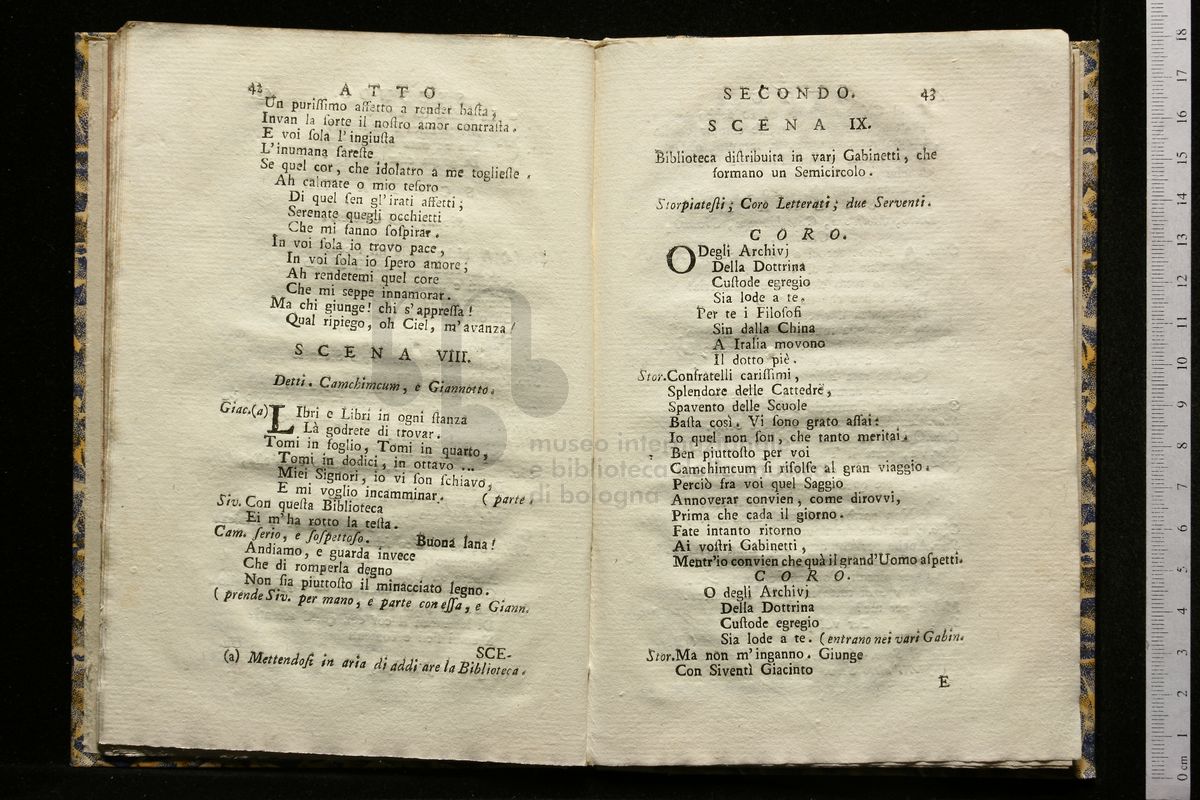 42 ATTO
Un puriſſimo affetto a render baſta,
Invan la ſorte il noſtro amor contraſta.
E voi ſola l'ingiuſta
L'inumana ſareſte
Se quel cor, che idolatro a me toglieſte.
Ah calmate o mio teſoro
Di quel ſen gl'irati affetti;
Serenate quegli occhietti
Che mi fanno ſoſpirar.
In voi ſola io trovo pace,
In voi ſola io ſpero amore;
Ah rendetemi quel core
Che mi seppe innamorar.
Ma chi giunge! chi s'appreſſa!
Qual ripiego, oh Ciel, m'avanza!
SCENA VIII.
Detti. Camchimcum, e Giannotto.
Giac.(a) LIbri e Libri in ogni ſtanza
Là godrete di trovar.
Tomi in foglio, Tomi in quarto,
Tomi in dodici, in ottavo ...
Miei Signori, io vi ſon ſchiavo,
E mi voglio incamminar. (parte.
Siv. Con queſta Biblioteca
Ei m'ha rotto la teſta.
Cam. ſerio, e ſoſpettoſo. Buona lana!
Andiamo, e guarda invece
Che di romperla degno
Non ſia piuttoſto il minacciato legno.
(prende Siv. per mano, e parte con eſſa, e Giann.
SCE-
(a) Mettendoſi in aria di addi are la Biblioteca.
SECONDO. 43
SCENA IX.
Biblioteca diſtribuita in varj Gabinetti, che
formano un Semicircolo.
Storpiateſti; Coro Letterati; due Serventi.
CORO.
O Degli Archivj
Della Dottrina
Cuſtode egregio
Sia lode a te.
Per te i Filoſofi
Sin dalla China
A Italia movono
Il dotto piè.
Stor. Confratelli cariſſimi,
Splendore delle Cattedre,
Spavento delle Scuole
Baſta così. Vi ſono grato aſſai:
Io quel non ſon, che tanto meritai.
Ben piuttoſto per voi
Camchimcum ſi riſolſe al gran viaggio.
Perciò fra voi quel Saggio
Annoverar convien, come dirovvi,
Prima che cada il giorno.
Fate intanto ritorno
Ai voſtri Gabinetti,
Mentr'io convien che quà il grand'Uomo aſpetti.
CORO.
O degli Archivj
Della Dottrina
Cuſtode egregio
Sia lode a te. (entrano nei vari Gabin.
Stor. Ma non m'inganno. Giunge
Con Siventì Giacinto
E
museo inter
e biblioteca
di bologna
0 cm 1 2 3 4 5 6 7 8 9 10 11 12 13 14 15 16 17 18